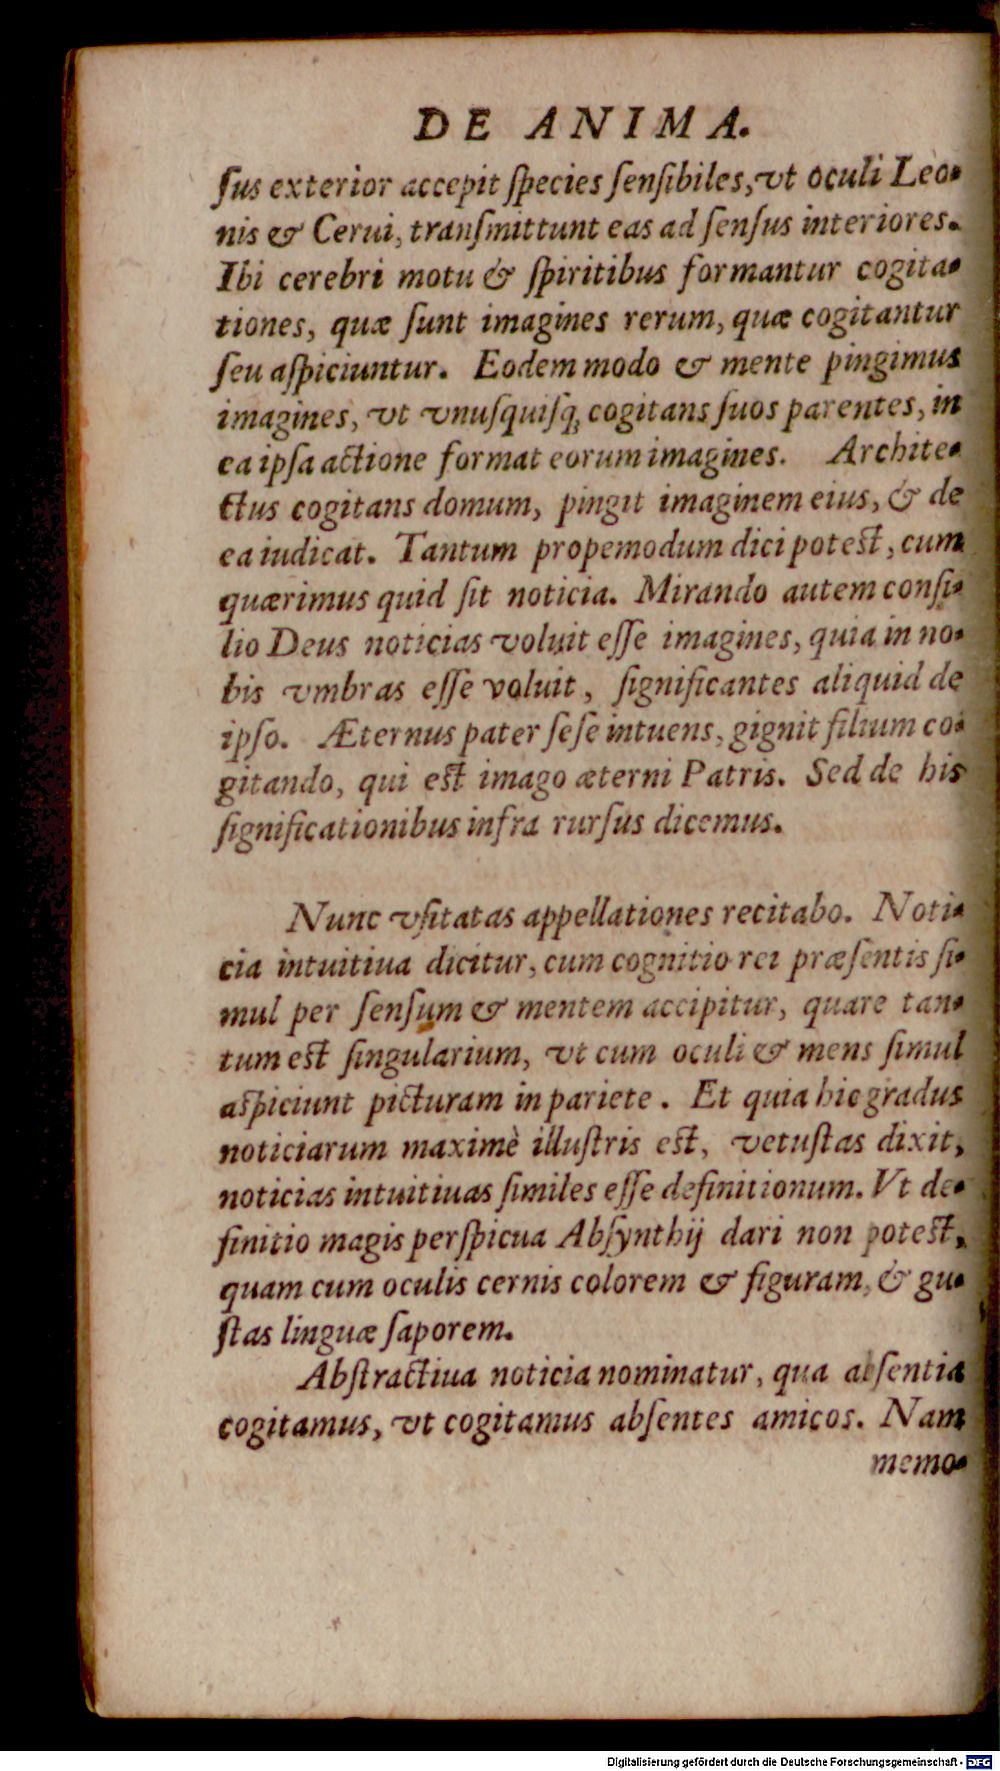 DE ANIMA.
ſus exterior accepit ſpecies ſenſibiles, vt oculi Leo-
nis & Cerui, tranſmittunt eas ad ſenſus interiores.
Ibi cerebri motu & ſpiritibus formantur cogita-
tiones, quæ ſunt imagines rerum, quæ cogitantur
ſeu aſpiciuntur. Eodem modo & mente pingimus
imagines, vt vnuſquiſq; cogitans ſuos parentes, in
ea ipſa actione format eorum imagines. Archite-
ctus cogitans domum, pingit imaginem eius, & de
ea iudicat. Tantum propemodum dici poteſt, cum
quærimus quid ſit noticia. Mirando autem conſi-
lio Deus noticias voluit eſſe imagines, quia in no-
bis vmbras eſſe voluit, ſignificantes aliquid de
ipſo. Æternus pater ſeſe intuens, gignit filium co-
gitando, qui eſt imago æterni Patris. Sed de his
ſignificationibus infra rurſus dicemus.
Nunc vſitatas appellationes recitabo. Noti-
cia intuitiua dicitur, cum cognitio rei præſentis ſi-
mul per ſenſum & mentem accipitur, quare tan-
tum eſt ſingularium, vt cum oculi & mens ſimul
aſpiciunt picturam in pariete. Et quia hic gradus
noticiarum maximè illuſtris eſt, vetuſtas dixit,
noticias intuitiuas ſimiles eſſe definitionum. Vt de-
finitio magis perſpicua Abſynthij dari non poteſt,
quam cum oculis cernis colorem & figuram, & gu-
ſtas linguæ ſaporem.
Abſtractiua noticia nominatur, qua abſentia
cogitamus, vt cogitamus abſentes amicos. Nam
memo-
Digitalisierung gefördert durch die Deutsche Forschungsgemeinschaft - DFG